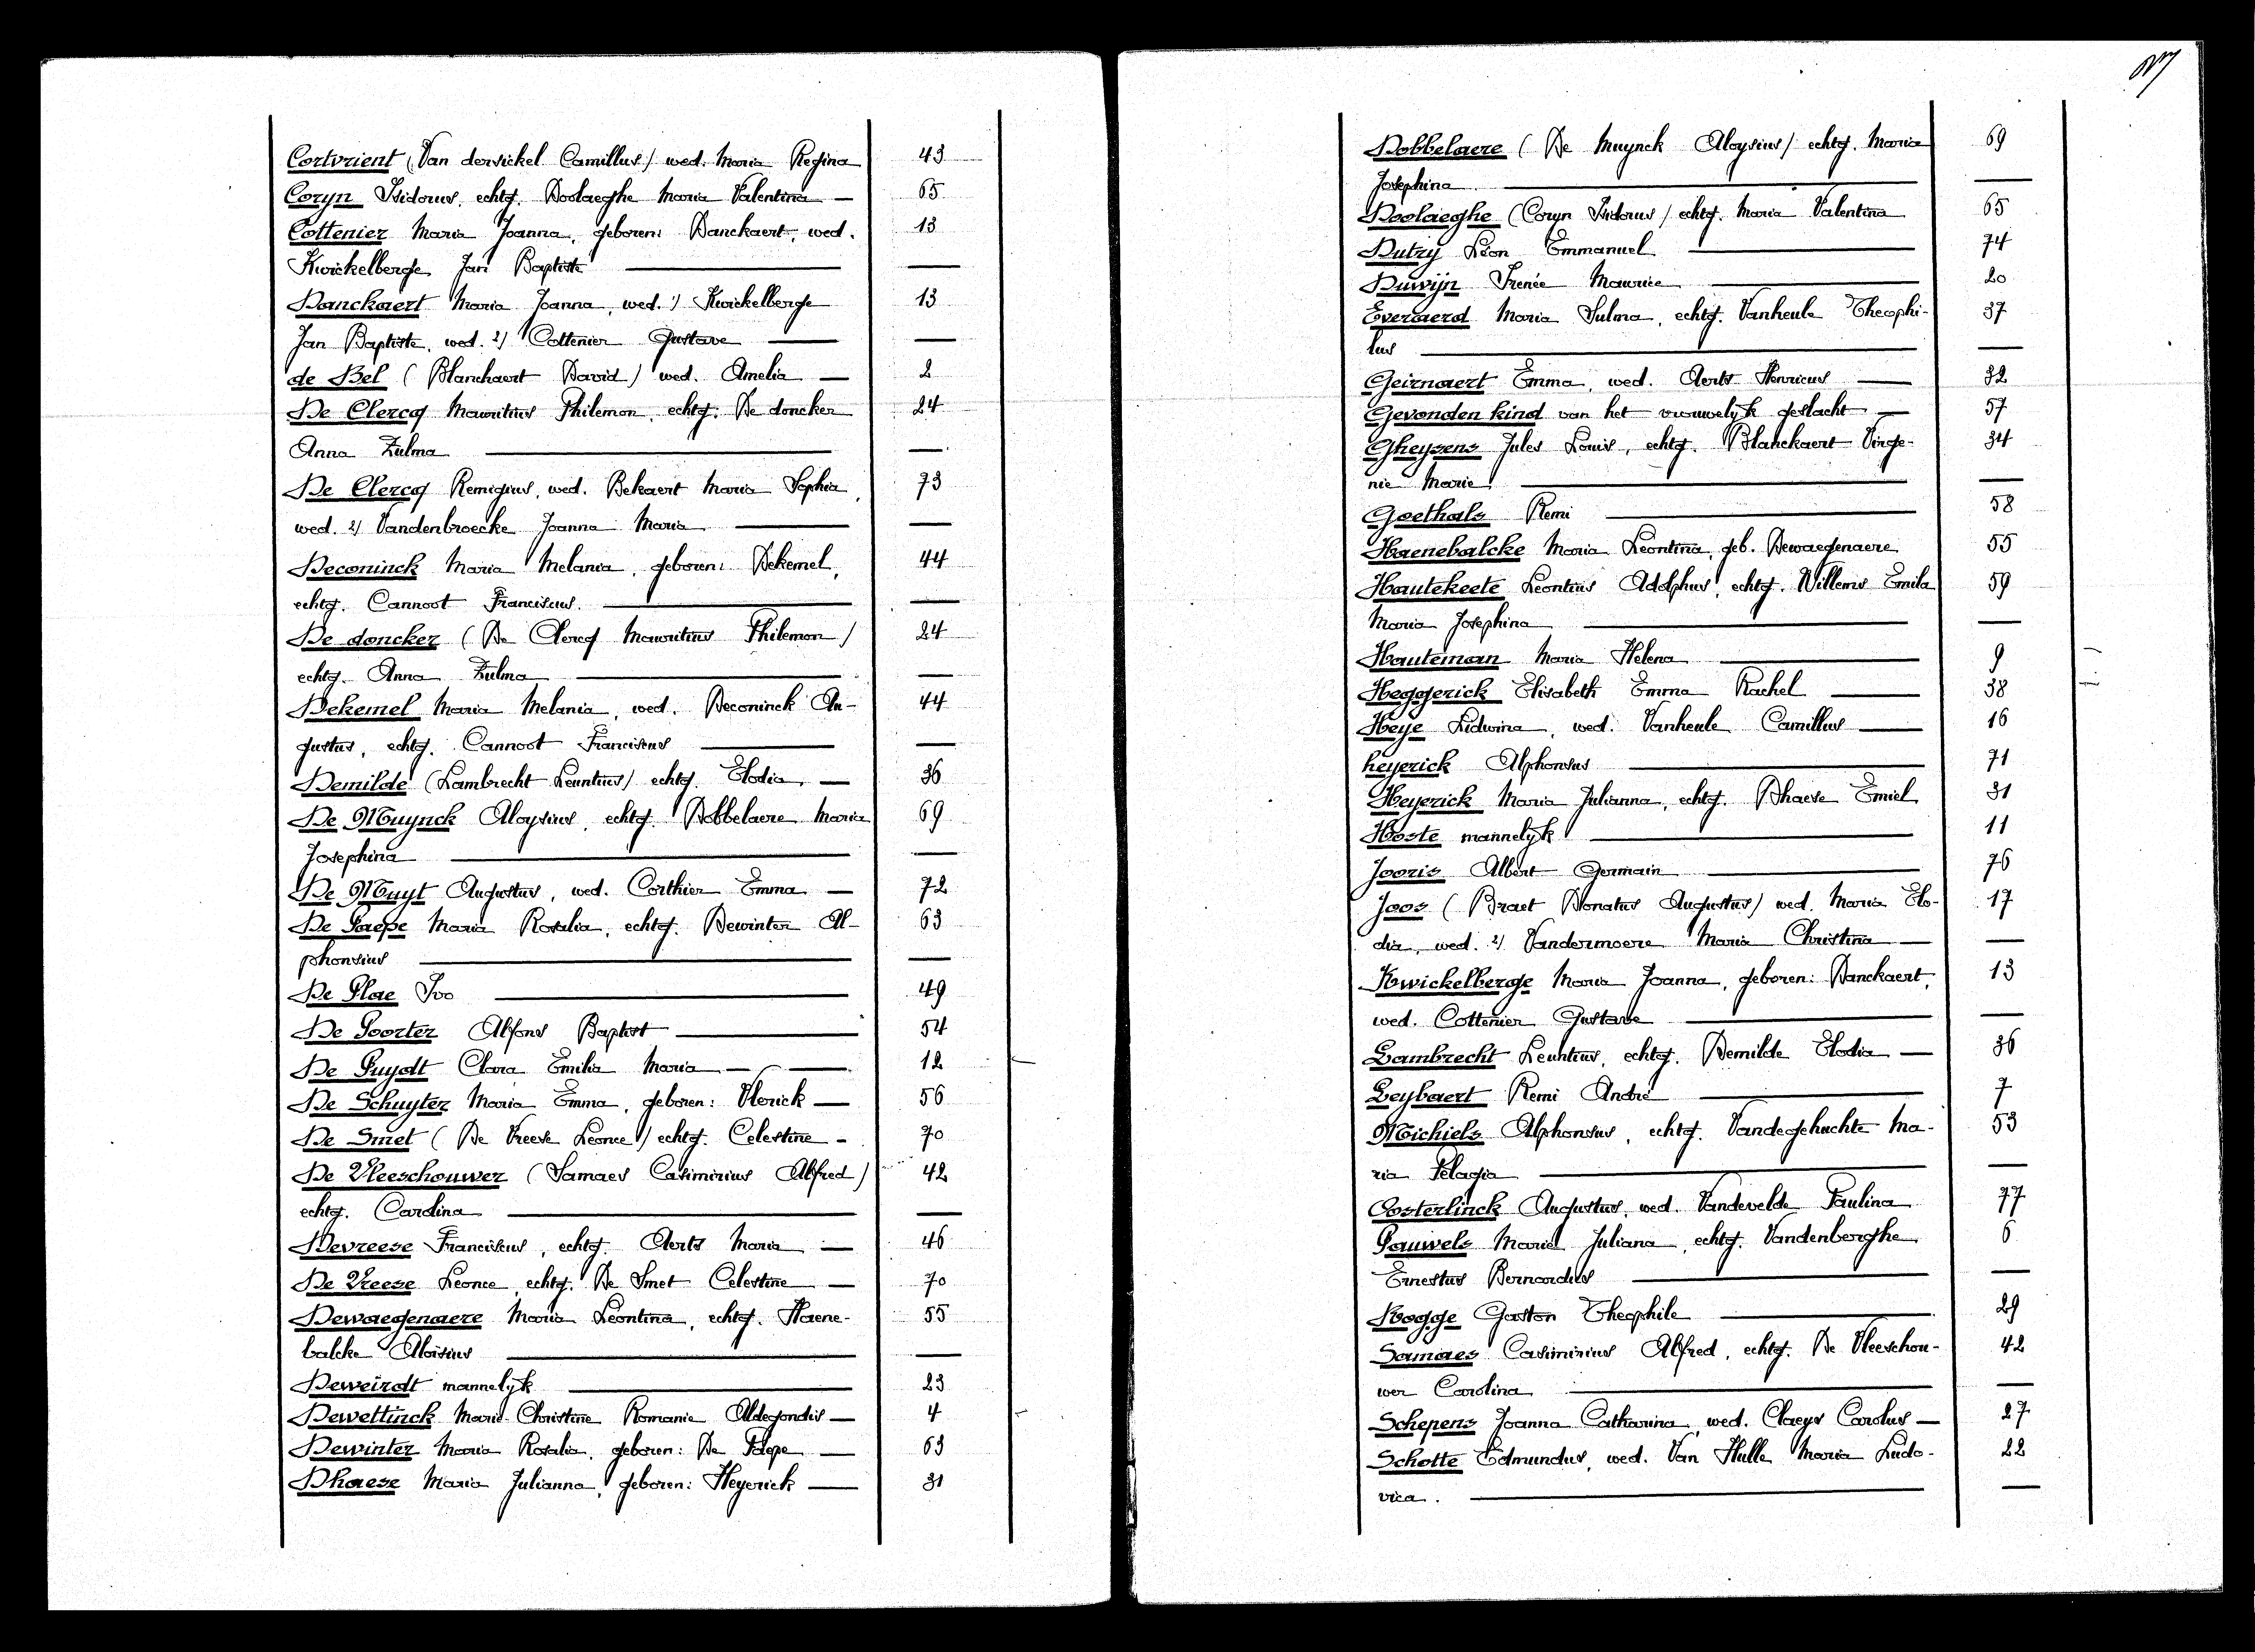 Cortvrient (Van dersickel Camillus) wed. Maria Regina 43
Coryn Isidorus, echtg. Doolaeghe Maria Valentina — 65
Cottenier Maria Joanna, geboren: Danckaert, wed. 13
Kwickelberge Jan Baptiste — —
Danckaert Maria Joanna, wed. 1) Kwickelberge 13
Jan Baptiste, wed. 2) Cottenier Gustave — —
de Bel (Blanchaert David) wed. Amelia — 2
De Clercq Mauritius Philemon, echtg. De doncker 24
Anna Zulma — —
De Clercq Remigius, wed. Bekaert Maria Sophia, 73
wed. 2) Vandenbroecke Joanna Maria — —
Deconinck Maria Melania, geboren: Dekemel, 44
echtg. Cannoot Franciscus. — —
De doncker (De Clercq Mauritius Philemon) 24
echtg. Anna Zulma — —
Dekemel Maria Melania, wed. Deconinck Au- 44
gustus, echtg. Cannoot Franciscus — —
Demilde (Lambrecht Leuntius) echtg. Elodia, — 36
De Muynck Aloysius, echtg. Dobbelaere Maria 69
Josephina — —
De Muyt Augustus, wed. Corthier Emma — 72
De Paepe Maria Rosalia, echtg. Dewinter Al- 63
phonsius — —
De Plae Ivo — 49
De Poorter Alfons Baptist — 54
De Puydt Clara Emilia Maria — — 12 —
De Schuyter Maria Emma, geboren: Vlerick — 56
De Smet (De Vreese Leonce) echtg. Celestine — 70
De Vleeschouwer (Samaes Casimirius Alfred) 42
echtg. Carolina — —
Devreese Franciscus, echtg. Aerts Maria — 46
De Vreese Leonce, echtg. De Smet Celestine — 70
Dewaegenaere Maria Leontina, echtg. Haene- 55
balcke Aloïsius — —
Deweirdt mannelyk — 23
Dewettinck Marie Christine Romanie Aldegondis — 4 -
Dewinter Maria Rosalia, geboren: De Paepe — 63
Dhaese Maria Julianna, geboren: Heyerick — 31
Dobbelaere (De Muynck Aloysius) echtg. Maria 69
Josephina — —
Doolaeghe (Coryn Isidorus) echtg. Maria Valentina 65
Dutry Léon Emmanuel — 74
Duwijn Irenée Maurice — 20
Everaerd Maria Sulma, echtg. Vanheule Theophi- 37
lus — —
Geirnaert Emma, wed. Aerts Henricus — 32
Gevonden kind van het vrouwelyk geslacht — 57
Gheysens Jules Louis, echtg. Blanckaert Virge- 34
nie Marie. — —
Goethals Remi — 58
Haenebalcke Maria Leontina, geb. Dewaegenaere 55
Hautekeete Leontius Adolphus, echtg. Willems Emila 59
Maria Josephina — —
Hauteman Maria Helena — 9 —
Heggerick Elisabeth Emma Rachel — 38 —
Heye Ludwina, wed. Vanheule Camillus — 16
heyerick Alphonsus — 71
Heyerick Maria Julianna, echtg. Dhaese Emiel 31
Hoste mannelyk — 11
Jooris Albert Germain — 76
Joos (Braet Donatus Augustus) wed. Maria Elo- 17
dia, wed. 2) Vandermoere Maria Christina — —
Kwickelberge Maria Joanna, geboren: Danckaert, 13
wed. Cottenier Gustave — —
Lambrecht Leuntius, echtg. Demilde Elodia — 36
Leybaert Remi André — 7
Michiels Alphonsus, echtg. Vandegehuchte Ma- 53
ria Pelagia — —
Oosterlinck Augustus, wed. Vandevelde Paulina 77
Pauwels Maria Juliana, echtg. Vandenberghe 6
Ernestus Bernardus — —
Rogge Gaston Theophile — 29
Samaes Casimirius Alfred, echtg. De Vleeschou- 42
wer Carolina — —
Schepens Joanna Catharina, wed. Claeys Carolus — 27
Schotte Edmundus, wed. Van Hulle Maria Ludo- 22
vica. — —